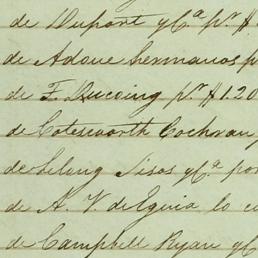 de Dupont y Cª pr $
de Adoue hermanos p
de F. Ducoing pr $ 1.20
de Cotesworth Cochran
de Selang Sisos y Cª. por
de A. V. de Eguia lo c
de Campbell Ryan y C